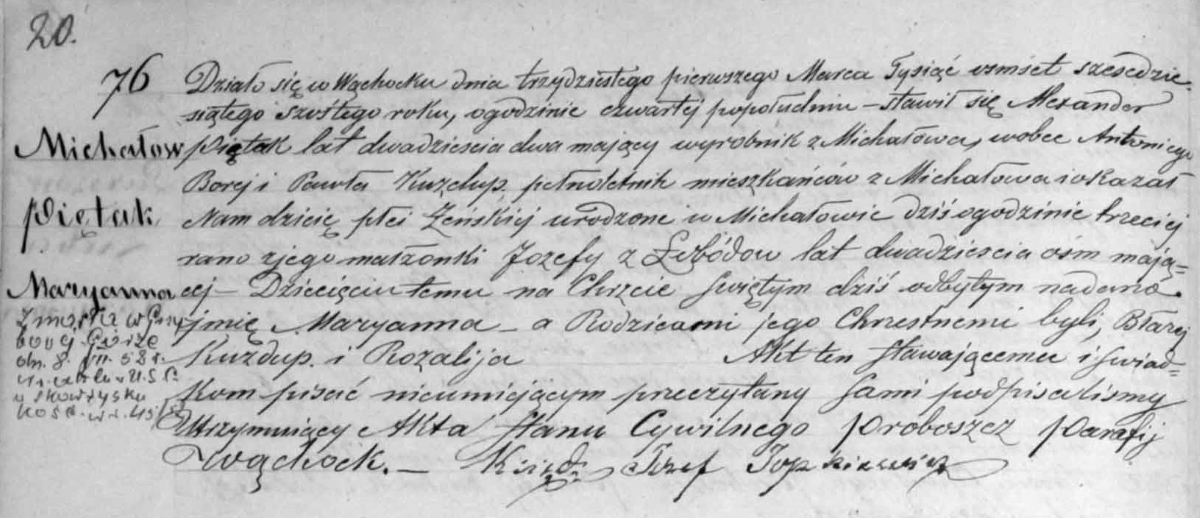 20.
76
Michałow
Piętak
Maryanna
Zmarła w Grzy
bowej Górze
dn. 8. VII. 58 r.
U.S.C.
w Skarżysku
Działo się w Wąchocku dnia trzydziestego pierwszego Marca Tysiąc osmset szescdzie-
siątego szostego roku, o godzinie czwartej popołudniu – stawił się Alexander
Piętak lat dwadziescia dwa mający wyrobnik z Michałowa, wobec Antoniego
Borej i Pawła Kuzdup. pełnoletnik mieszkańców z Michałowa i okazał
Nam dziecię płci Zeńskiej urodzone w Michałowie dziś o godzinie trzeciej
rano z jego małzonki Jozefy z Łebódow lat dwadziescia ośm mają-
cej – Dziecięciu temu na Chrzcie Swiętym dziś odbytym nadano
jmię Maryanna – a Rodzicami jego Chrzestnemi byli, Błazej
Kuzdup. i Rozalija Akt ten stawającemu i swiad-
kom pisać nieumiejącym przeczytany Sami podpisalismy
Utrzymujący Akta Stanu Cywilnego Proboszcz Parafij
Wąchock. – Ksiądz Jozef